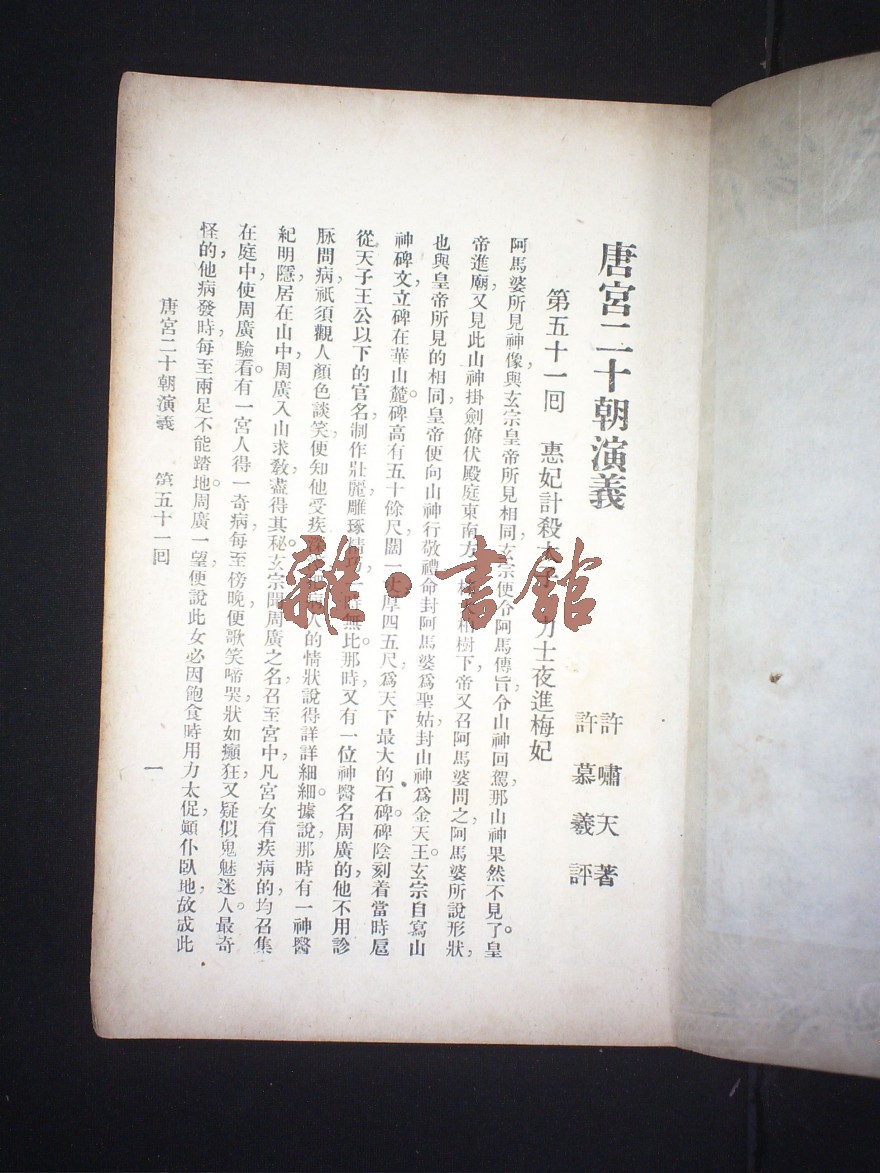 唐宮二十朝演義
許嘯天著
許慕羲評
第五十一回 惠妃計殺太 力士夜進梅妃
阿馬婆所見神像,與玄宗皇帝所見相同,玄宗便令阿馬傳旨,令山神回駕,那山神果然不見了。皇
帝進廟,又見此山神掛劍俯伏殿庭東南方 柏樹下,帝又召阿馬婆問之,阿馬婆所說形狀,
也與皇帝所見的相同,皇帝便向山神行敬禮,命封阿馬婆為聖姑,封山神為金天王。玄宗自寫山
神碑文,立碑在華山麓。碑高有五十餘尺,闊一丈,厚四五尺,為天下最大的石碑。碑陰刻着當時扈
從天子王公以下的官名,制作壯麗,雕琢精巧 無比。那時又有一位神醫名周廣的,他不用診
脉問病,祇須觀人顏色談笑,便知他受疾深 病人的情狀,說得詳詳細細。據說那時有一神醫
紀明,隱居在山中,周廣入山求教,盡得其秘。玄宗聞周廣之名,召至宮中,凡宮女有疾病的,均召集
在庭中,使周廣驗看。有一宮人得一奇病,每至傍晚,便歌笑啼哭,狀如癲狂,又疑似鬼魅迷人。最奇
怪的,他病發時,每至兩足不能踏地。周廣一望,便說此女必因飽食時用力太促,顚仆臥地,故成此
唐宮二十朝演義 第五十一回
一
雜·書館